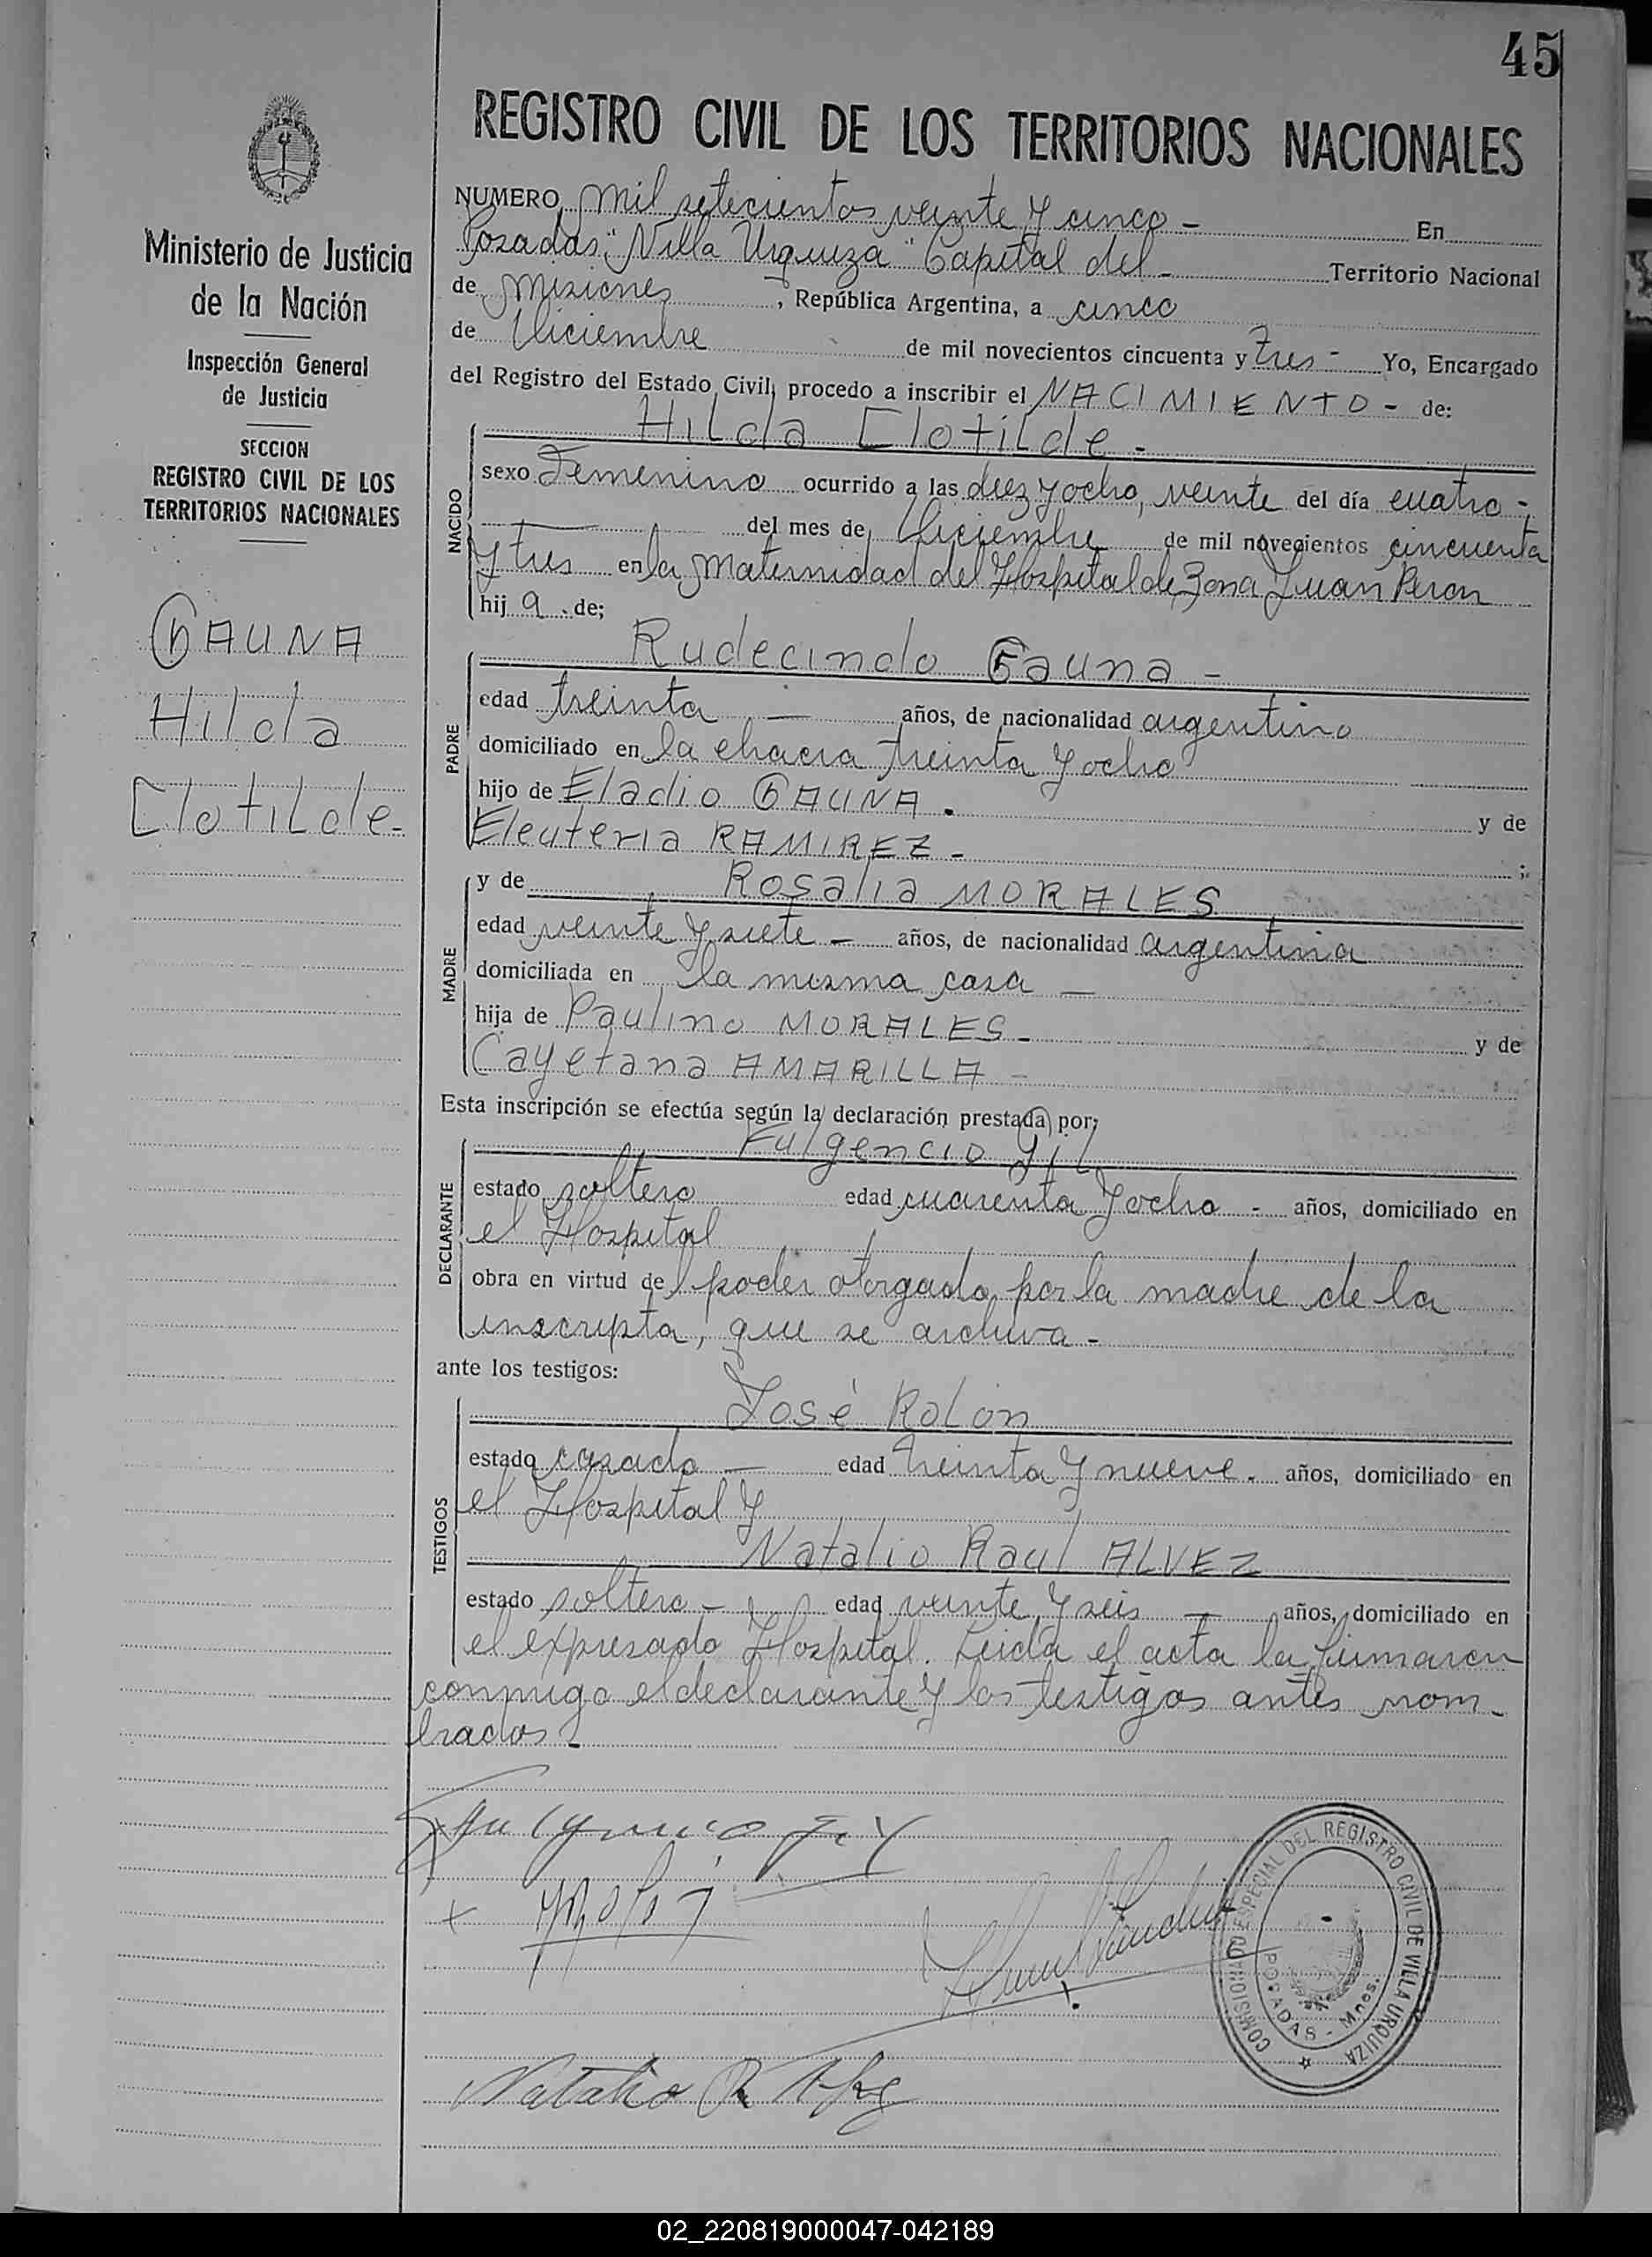 45
REGISTRO CIVIL DE LOS TERRITORIOS NACIONALES
Ministerio de Justicia
de la Nación
Inspección General
de Justicia
SECCION
REGISTRO CIVIL DE LOS
TERRITORIOS NACIONALES
GAUNA
Hilda
Clotilde-
NUMERO mil setecientos veinte y cinco - En
Posadas "Villa Urquiza" Capital del - Territorio Nacional
de Misiones, República Argentina, a cinco
de Diciembre de mil novecientos cincuenta y tres - Yo, Encargado
del Registro del Estado Civil, procedo a inscribir el NACIMIENTO - de:
Hilda Clotilde -
NACIDO
sexo Femenino ocurrido a las diez y ocho, veinte del día cuatro -
del mes de Diciembre de mil novecientos cincuenta
y tres en la Maternidad del Hospital de Zona Juan Peron
hija de;
Rudecindo Gauna -
PADRE
edad treinta - años, de nacionalidad argentino
domiciliado en la chacra treinta y ocho
hijo de Eladio GAUNA. y de
Eleuteria RAMIREZ - ;
y de Rosalia MORALES
MADRE
edad veinte y siete - años, de nacionalidad argentina
domiciliada en la misma casa -
hija de Paulino MORALES - y de
Cayetana AMARILLA -
Esta inscripción se efectúa según la declaración prestada por:
Fulgencio Gil
DECLARANTE
estado soltero edad cuarenta y ocho - años, domiciliado en
el Hospital
obra en virtud del poder otorgado por la madre de la
inscripta, que se archiva -
ante los testigos:
José Rolon
TESTIGOS
estado casado - edad treinta y nueve. años, domiciliado en
el Hospital y
Natalio Raul ALVEZ
estado soltero - edad veinte y seis - años, domiciliado en
el expresado Hospital. Leida el acta la firmaron
conmigo el declarante y los testigos antes nom-
brados -
Fulgencio Gil
Natalio R
COMISIONADO ESPECIAL DEL REGISTRO CIVIL DE VILLA URQUIZA
POSADAS - Mnes.
02_220819000047-042189